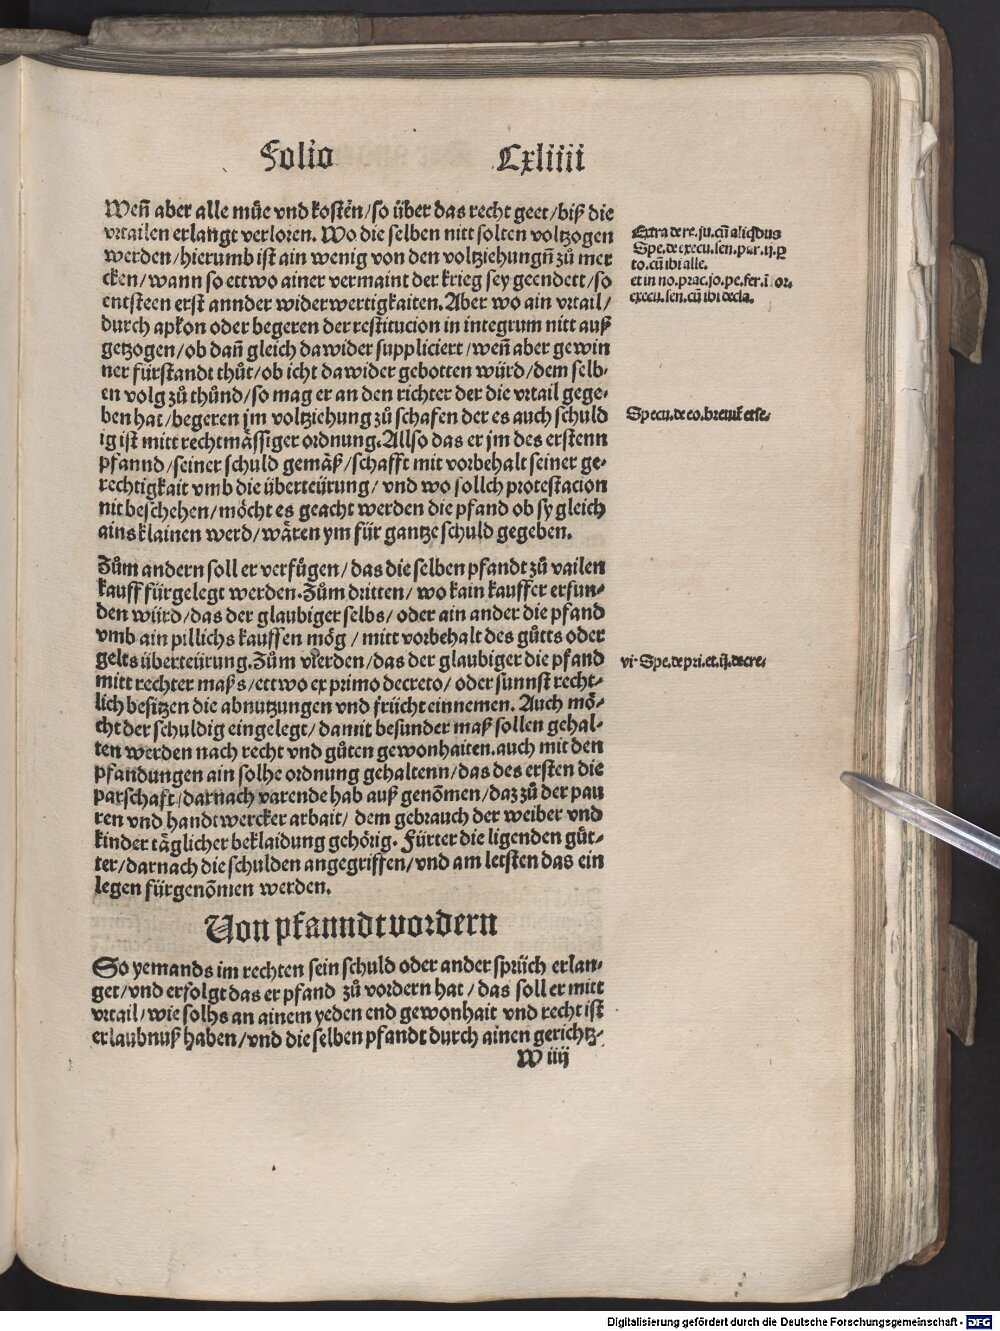 Folio Cxliiii
Wen̄ aber alle mu̇e vnd kostēn/so über das recht geet/biß die
vrtailen erlangt verloren. Wo die selben nitt solten voltzogen
werden/hierumb ist ain wenig von den voltziehungn̄ zů mer
cken/wann so ettwo ainer vermaint der krieg sey geendett/so
entsteen erst annder widerwertigkaiten. Aber wo ain vrtail/
durch apłon oder begeren der restitucion in integrum nitt auß
getzogen/ob dan̄ gleich dawider suppliciert/wen̄ aber gewin
ner fürstandt thůt/ob icht dawider gebotten würd/dem selb-
en volg zů thůnd/so mag er an den richter der die vrtail gege-
ben hat/begeren jm voltziehung zů schafen der es auch schuld
ig ist mitt rechtmässiger ordnung. Allso das er jm des erstenn
pfannd/seiner schuld gemäß/schafft mit vorbehalt seiner ge-
rechtigkait vmb die überteürung/ vnd wo sollch protestacion
nit beschehen/möcht es geacht werden die pfand ob sy gleich
ains klainen werd/wären ym für gantze schuld gegeben.
Zům andern soll er verfügen/das die selben pfandt zů vailen
kauff fürgelegt werden. Zům dritten/ wo kain kauffer erfun-
den würd/das der glaubiger selbs/oder ain ander die pfand
vmb ain pillichs kauffen mög / mitt vorbehalt des gůtts oder
gelts überteürung. Zům vierden/das der glaubiger die pfand
mitt rechter maß s/ettwo ex primo decreto/ oder sunnst recht-
lich besitzen die abnutzungen vnd frücht einnemen. Auch mö-
cht der schuldig eingelegt/damit besunder maß sollen gehal-
ten werden nach recht vnd gůten gewonhaiten. auch mit den
pfandungen ain solhe ordnung gehaltenn/das des ersten die
parschaft/darnach varende hab auß genōmen/daz zů der pau
ren vnd handtwercker arbait/ dem gebrauch der weiber vnd
kinder täglicher beklaidung gehörig. Fürter die ligenden gůt-
ter/darnach die schulden angegriffen/vnd am letsten das ein
legen fürgenōmen werden.
Von pfanndt vordern
So yemands im rechten sein schuld oder ander sprüch erlan-
get/vnd erfolgt das er pfand zů vordern hat / das soll er mitt
vrtail/wie solhs an ainem yeden end gewonhait vnd recht ist
erlaubnuß haben/vnd die selben pfandt durch ainen gerichtz-
W iiij
Extra de re. ju. cū aliqbus
Spe. de execu. sen. par. ij. ꝑ
to. cū ibi alle.
et in no. prac. jo. pe. fer. ī or.
execu. sen. cū ibi decla.
Specu. de eo. breuit̄ et se.
vi. Spe. de pri. et. ij. decre.
Digitalisierung gefördert durch die Deutsche Forschungsgemeinschaft - DFG